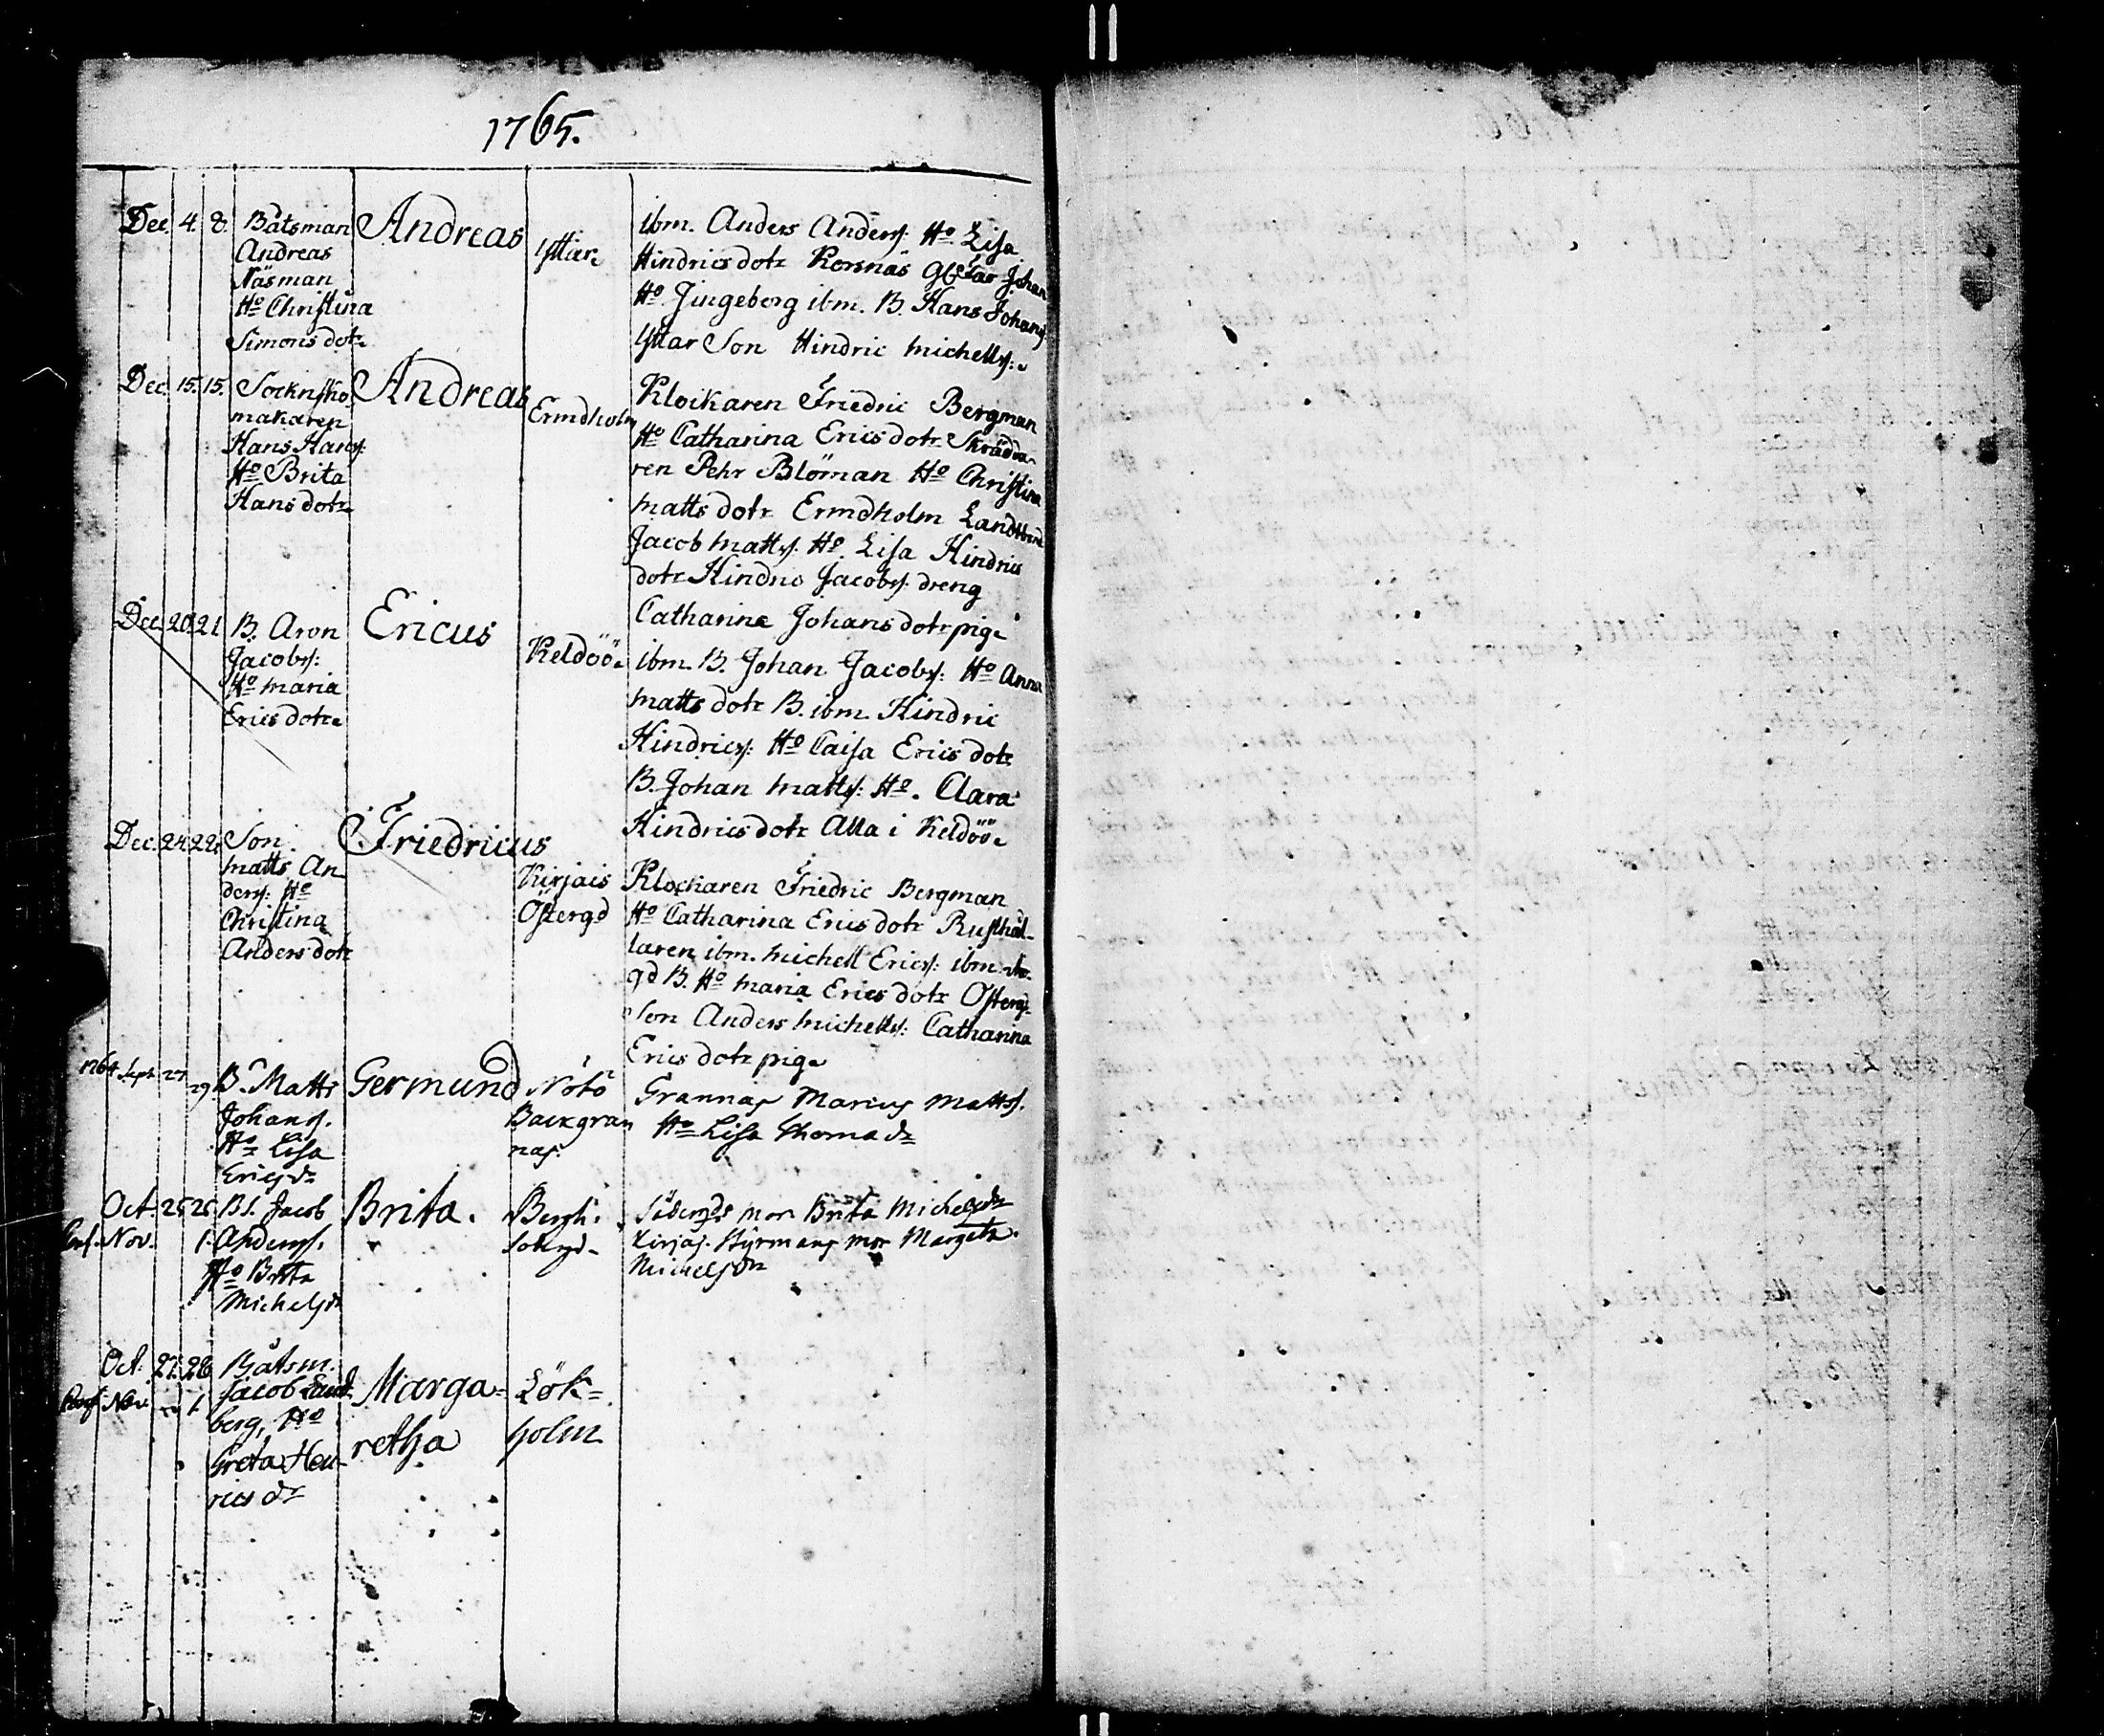 1765.
Dec. 4. 8. Båtsman Andreas
Andreas
Näsman
Ho Christina
Simons dotr
Yttar.
ibm. Anders Anderss: Ho Lisa
Hindrics dotr Korsnäs Johan
Ho Jingeborg ibm. B. Hans Johanss
Yttar Son Hindric Michells:
Dec. 15. 15. Socknsko Andreas
makaren
Hans Hanss:
Ho Brita
Hans dotr
Ermdholm
Klockaren Friedric Bergman
Ho Catharina Erics dotr Skrädda
ren Pehr Blöman Ho Christina
Matts dotr Ermdholm
Jacob Matts: Ho. Lisa Hindrics
dotr Hindric Jacobs: dreng
Catharina Johans dotr piga
Dec. 20. 21 B. Aron Ericus
Jacobs:
Ho Maria
Erics dotr
Keldöö.
ibm. B. Johan Jacobs: Ho Anna
Matts dotr B. ibm. Hindric
Hindrics: Ho Caisa Erics dotr
B. Johan Matts: Ho. Clara
Hindrics dotr Alla i Keldöö
Dec. 24. 22. Son Friedricus
Matts An
ders: Ho
Christina
Anders dotr
Kirjais
Östergd
Klockaren Friedric Bergman
Ho Catharina Erics dotr Rusthål-
laren ibm. Michell Erics: ibm.
gd B. Ho Maria Erics dotr Österg:
Son Anders Michells: Catharina
Erics dotr piga
1764 Sept. 27 29. B. Matts Germund Nötö
Johans.
Ho Lisa
Erics dr
Backgran
nas.
Grannas Marcus Matts.
Ho Lisa Thomas dr
Oct. 25 26. Bs. Jacob Brita. Bergh.
Nov. 1. Anders.
Ho Brita
Michels dr
Södergds mor Brita Michels dr
Kirjas. Styrmans mor Margeta
Michels dr
Oct. 27. 28 Båtsm. Marga= Lök=
Nov. 1. Jacob Land
berg, Ho
Greta Hen-
rics dr
retha
holm